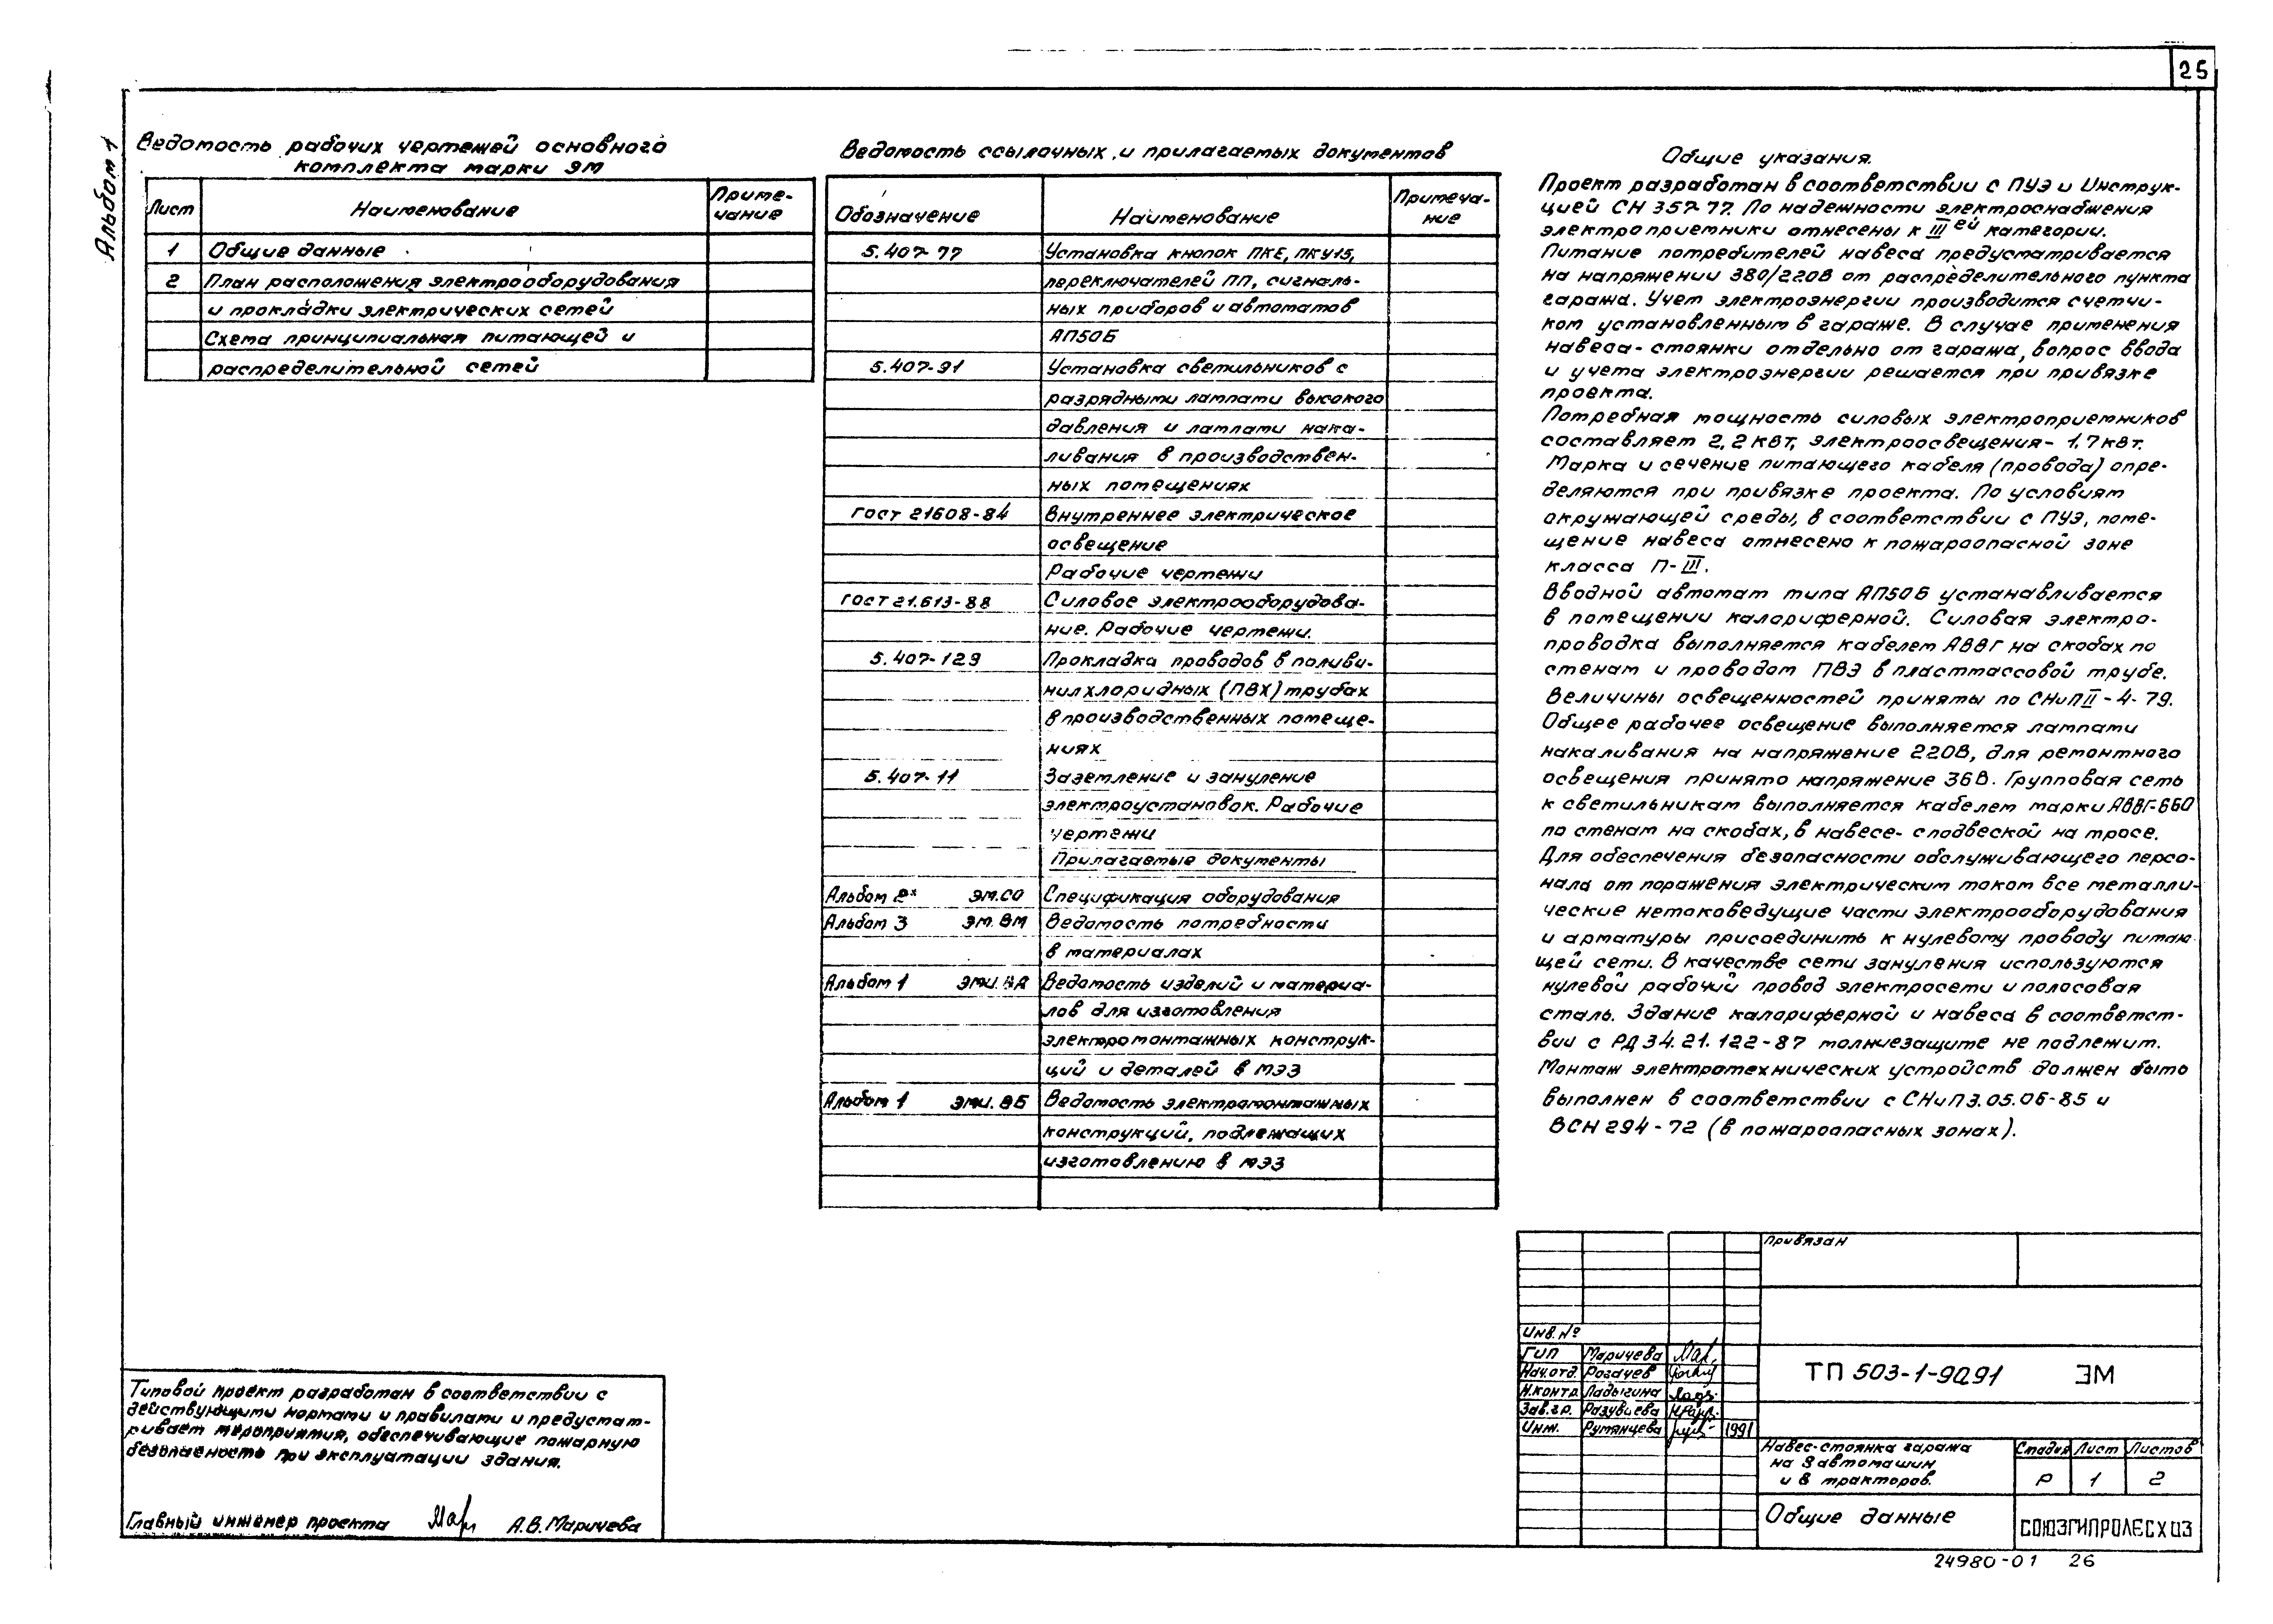 25
Альбом 1
Ведомость рабочих чертежей основного
комплекта марки ЭМ
Лист Наименование Приме-
чание
1 Общие данные
2 План расположения электрооборудования
и прокладки электрических сетей
Схема принципиальная питающей и
распределительной сетей
Ведомость ссылочных и прилагаемых документов
Обозначение Наименование Примеча-
ние
5.407-77 Установка кнопок ПКЕ, ПКУ15,
переключателей ПП, сигналь-
ных приборов и автоматов
АП50Б
5.407-91 Установка светильников с
разрядными лампами высокого
давления и лампами нака-
ливания в производствен-
ных помещениях
ГОСТ 21608-84 Внутреннее электрическое
освещение
Рабочие чертежи
ГОСТ 21.613-88 Силовое электрооборудова-
ние. Рабочие чертежи.
5.407-129 Прокладка проводов в поливи-
нилхлоридных (ПВХ) трубах
в производственных помеще-
ниях
5.407-11 Заземление и зануление
электроустановок. Рабочие
чертежи
Прилагаемые документы
Альбом 2х ЭМ.СО Спецификация оборудования
Альбом 3 ЭМ.ВМ Ведомость потребности
в материалах
Альбом 1 ЭМИ.ВА Ведомость изделий и материа-
лов для изготовления
электромонтажных конструк-
ций и деталей в МЭЗ
Альбом 1 ЭМИ.ВБ Ведомость электромонтажных
конструкций, подлежащих
изготовлению в МЭЗ
Общие указания.
Проект разработан в соответствии с ПУЭ и Инструк-
цией СН 357-77. По надежности электроснабжения
электроприемники отнесены к III ей категории.
Питание потребителей навеса предусматривается
на напряжении 380/220В от распределительного пункта
гаража. Учет электроэнергии производится счетчи-
ком установленным в гараже. В случае применения
навеса-стоянки отдельно от гаража, вопрос ввода
и учета электроэнергии решается при привязке
проекта.
Потребная мощность силовых электроприемников
составляет 2,2 кВт, электроосвещения - 1,7 кВт.
Марка и сечение питающего кабеля (провода) опре-
деляются при привязке проекта. По условиям
окружающей среды, в соответствии с ПУЭ, поме-
щение навеса отнесено к пожароопасной зоне
класса П-III.
Вводной автомат типа АП50Б устанавливается
в помещении калориферной. Силовая электро-
проводка выполняется кабелем АВВГ на скобах по
стенам и проводом ПВЭ в пластмассовой трубе.
Величины освещенностей приняты по СНиП II-4-79.
Общее рабочее освещение выполняется лампами
накаливания на напряжение 220В, для ремонтного
освещения принято напряжение 36В. Групповая сеть
к светильникам выполняется кабелем марки АВВГ-660
по стенам на скобах, в навесе- с подвеской на тросе.
Для обеспечения безопасности обслуживающего персо-
нала от поражения электрическим током все металли-
ческие нетоковедущие части электрооборудования
и арматуры присоединить к нулевому проводу питаю-
щей сети. В качестве сети зануления используются
нулевой рабочий провод электросети и полосовая
сталь. Здание калориферной и навеса в соответст-
вии с РД 34.21.122-87 молниезащите не подлежит.
Монтаж электротехнических устройств должен быть
выполнен в соответствии с СНиП 3.05.06-85 и
ВСН 294-72 (в пожароопасных зонах).
Типовой проект разработан в соответствии с
действующими нормами и правилами и предусмат-
ривает мероприятия, обеспечивающие пожарную
безопасность при эксплуатации здания.
Главный инженер проекта А.В. Маричева
Привязан
Инв. №
ГИП Маричева
Нач.отд. Рогачев
Н.контр. Ладыгина
Зав.гр. Разуваева
Инж. Румянцева 1991
ТП 503-1-90.91 ЭМ
Навес-стоянка гаража
на 8 автомашин
и 8 тракторов.
Стадия Лист Листов
Р 1 2
Общие данные
СОЮЗГИПРОЛЕСХОЗ
24980-01 26